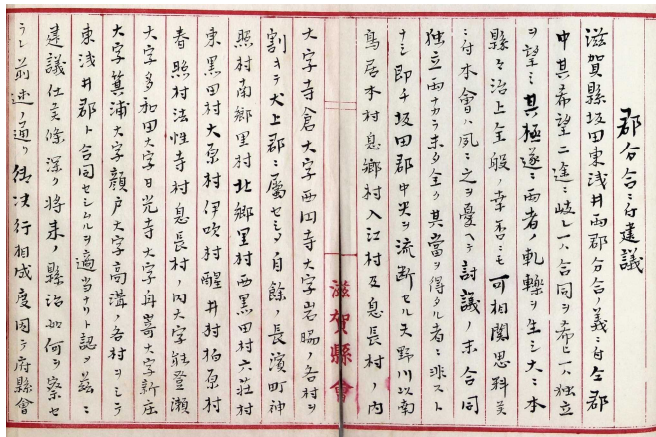 郡分合ニ付建議
滋賀縣坂田東浅井両郡分合ノ義ニ自仝郡
中其希望二途ニ岐レ一ハ合同ヲ希ヒ一ハ独立
ヲ望ミ其極遂ニ両者ノ軋轢ヲ生シ大ニ本
縣々治上全般ノ幸否ニモ可相関思料美
ニ付本會ハ夙ニ之ヲ憂ヘテ討議ノ末合同
独立両ナカラ未タ全ク其當ヲ得タル者ニ非スト
ナシ即チ坂田郡中央ヲ流断セル天野川以南
鳥居本村息郷村入江村及息長村ノ内
滋賀縣會
大字寺倉大字西円寺大字岩脇ノ各村ヲ
割キテ犬上郡ニ属セシメ自餘ノ長濱町神
照村南郷里村北郷里村西黒田村六荘村
東黒田村大原村伊吹村醒井村柏原村
春照村法性寺村息長村ノ内大字能登瀬
大字多和田大字日光寺大字舟崎大字新庄
大字箕浦大字顔戸大字高溝ノ各村ヲシテ
東浅井郡ト合同セシムルヲ適当ナリト認メ茲ニ
建議仕美條深ク将来ノ縣治如何ヲ察セ
ラレ前述ノ通リ御决行相成度因テ府縣會